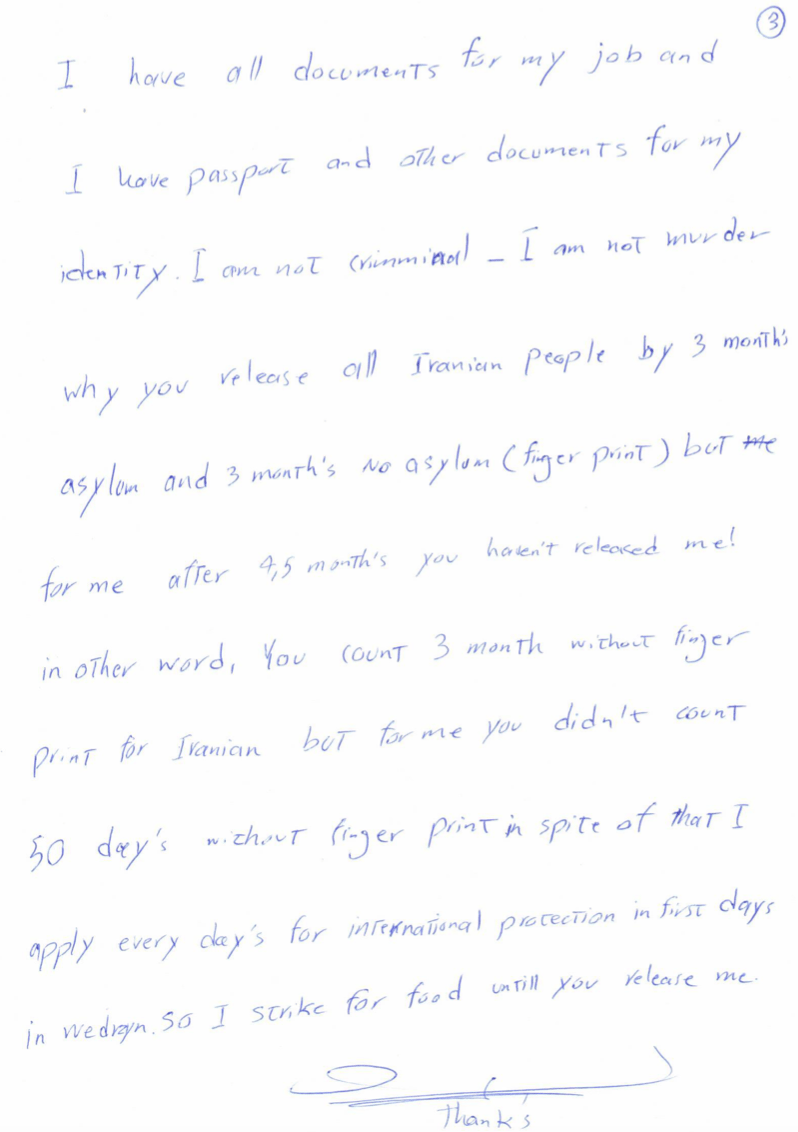 3
I have all documents for my job and
I have passport and other documents for my
identity. I am not crimminal - I am not murder
why you release all Iranian people by 3 month's
asylum and 3 month's No asylum (finger print) but me
for me after 4,5 month's you haven't released me!
in other word, You count 3 month without finger
print for Iranian but for me you didn't count
50 day's without finger print in spite of that I
apply every day's for international protection in first days
in wedrzyn. So I strike for food untill you release me.
Thanks